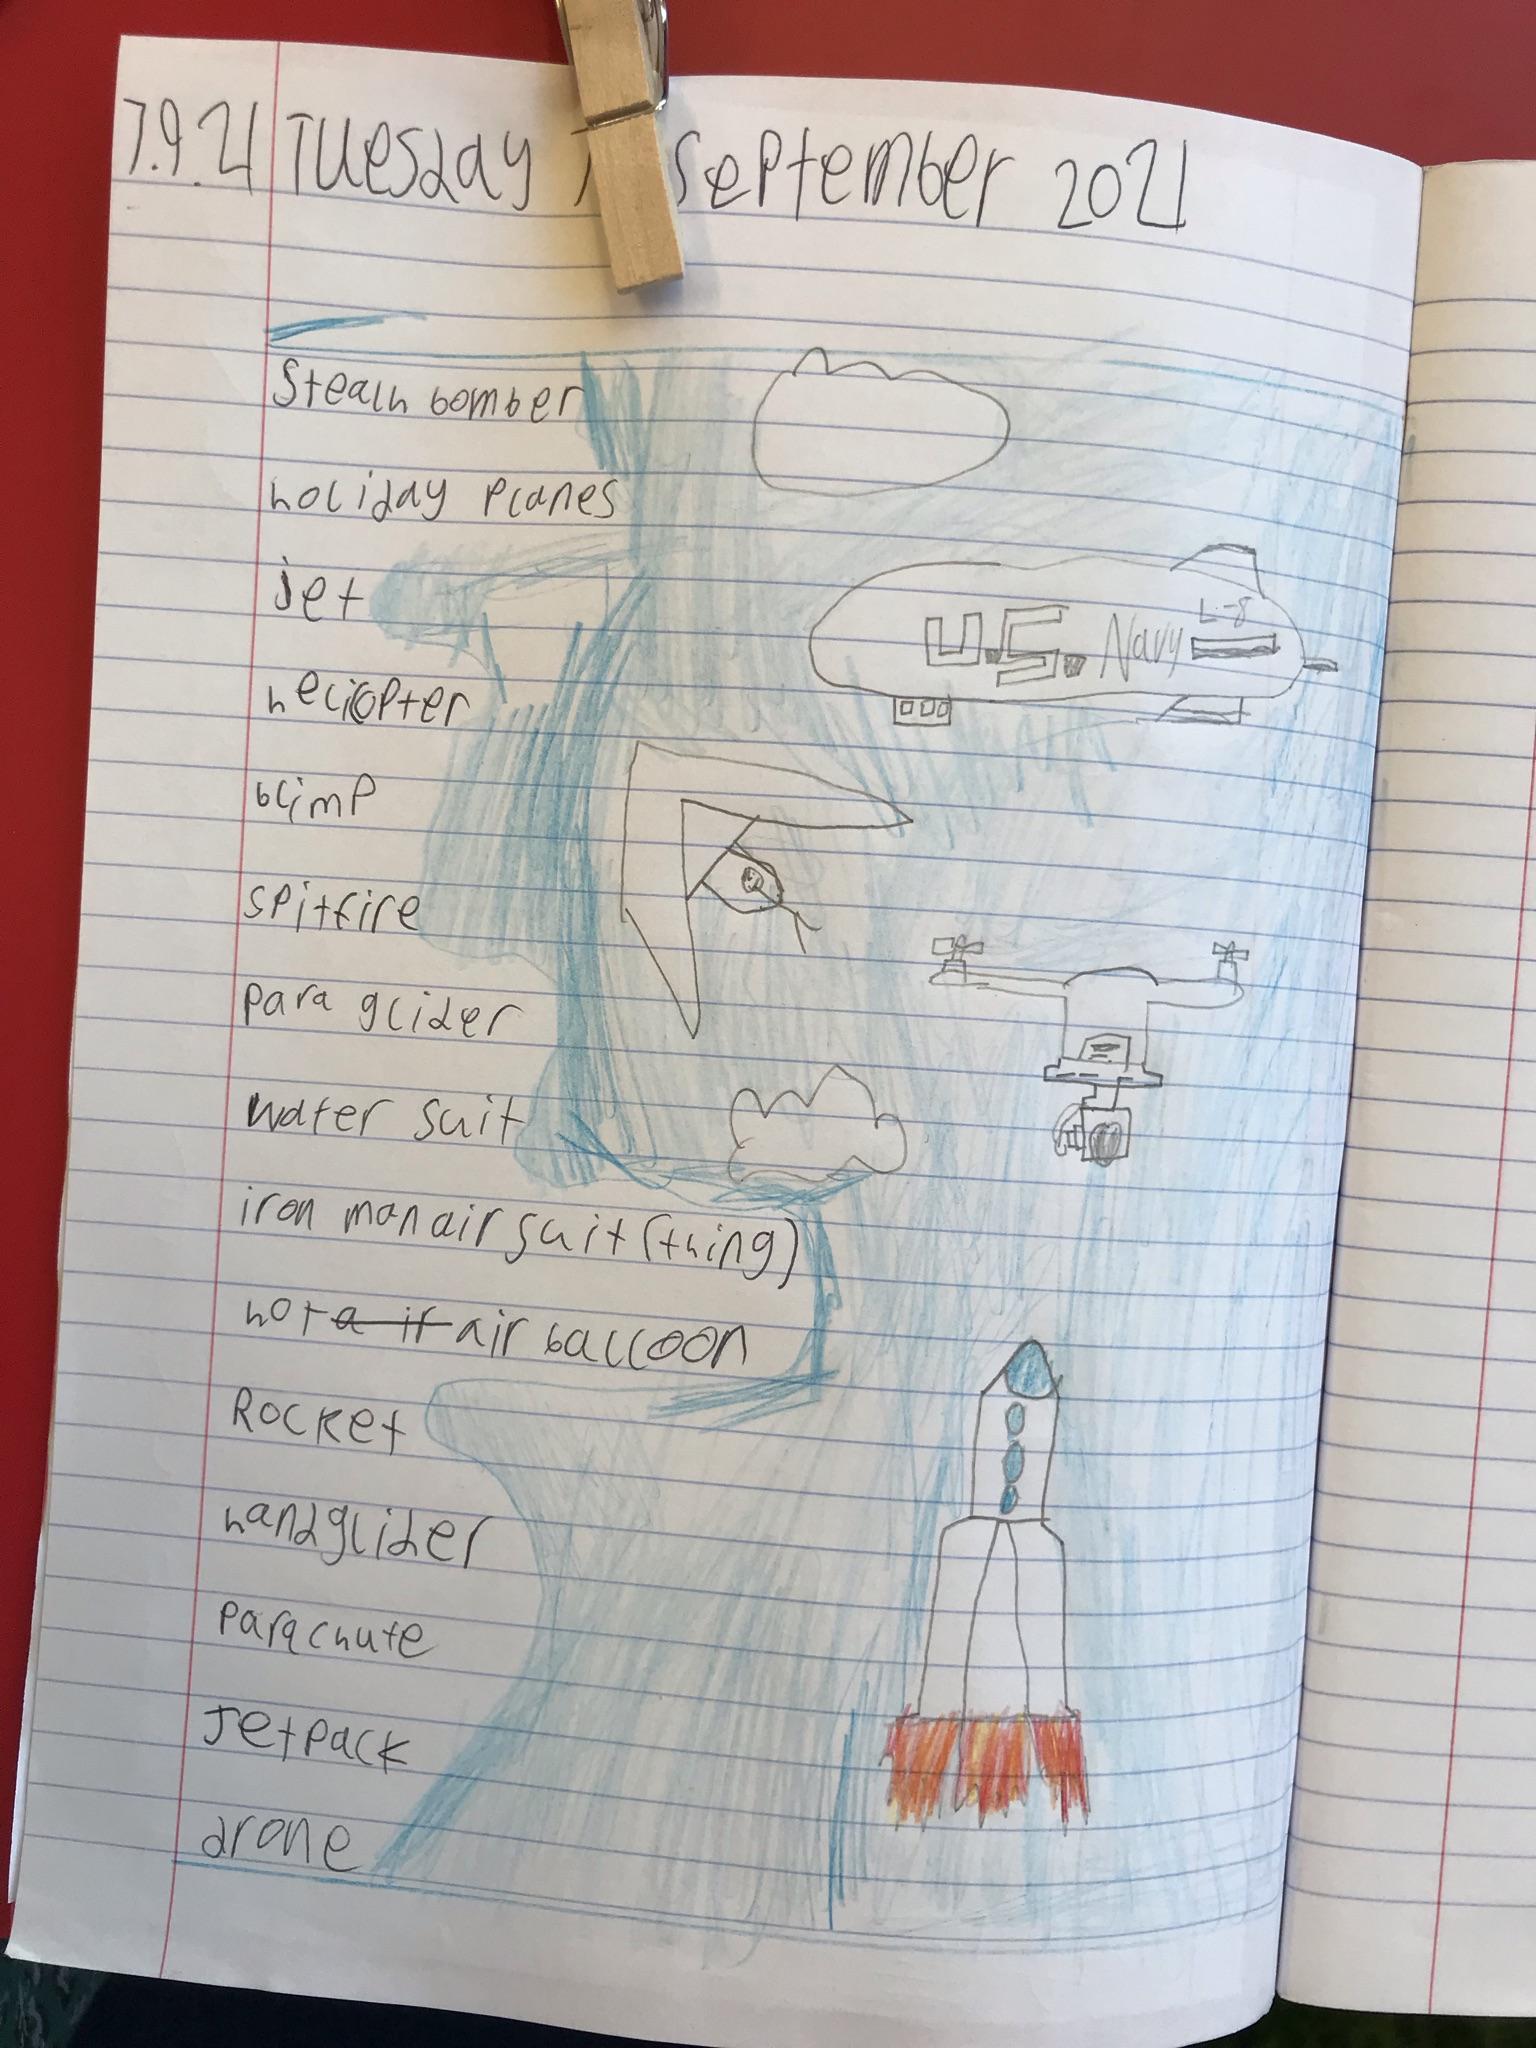 7.9.21 Tuesday 7 September 2021
Stealh bomber
holiday planes
jet
helicopter
U.S. Navy L-8
blimp
spitfire
para glider
water suit
iron man air suit (thing)
hot a if air balloon
Rocket
handglider
parachute
Jetpack
drone